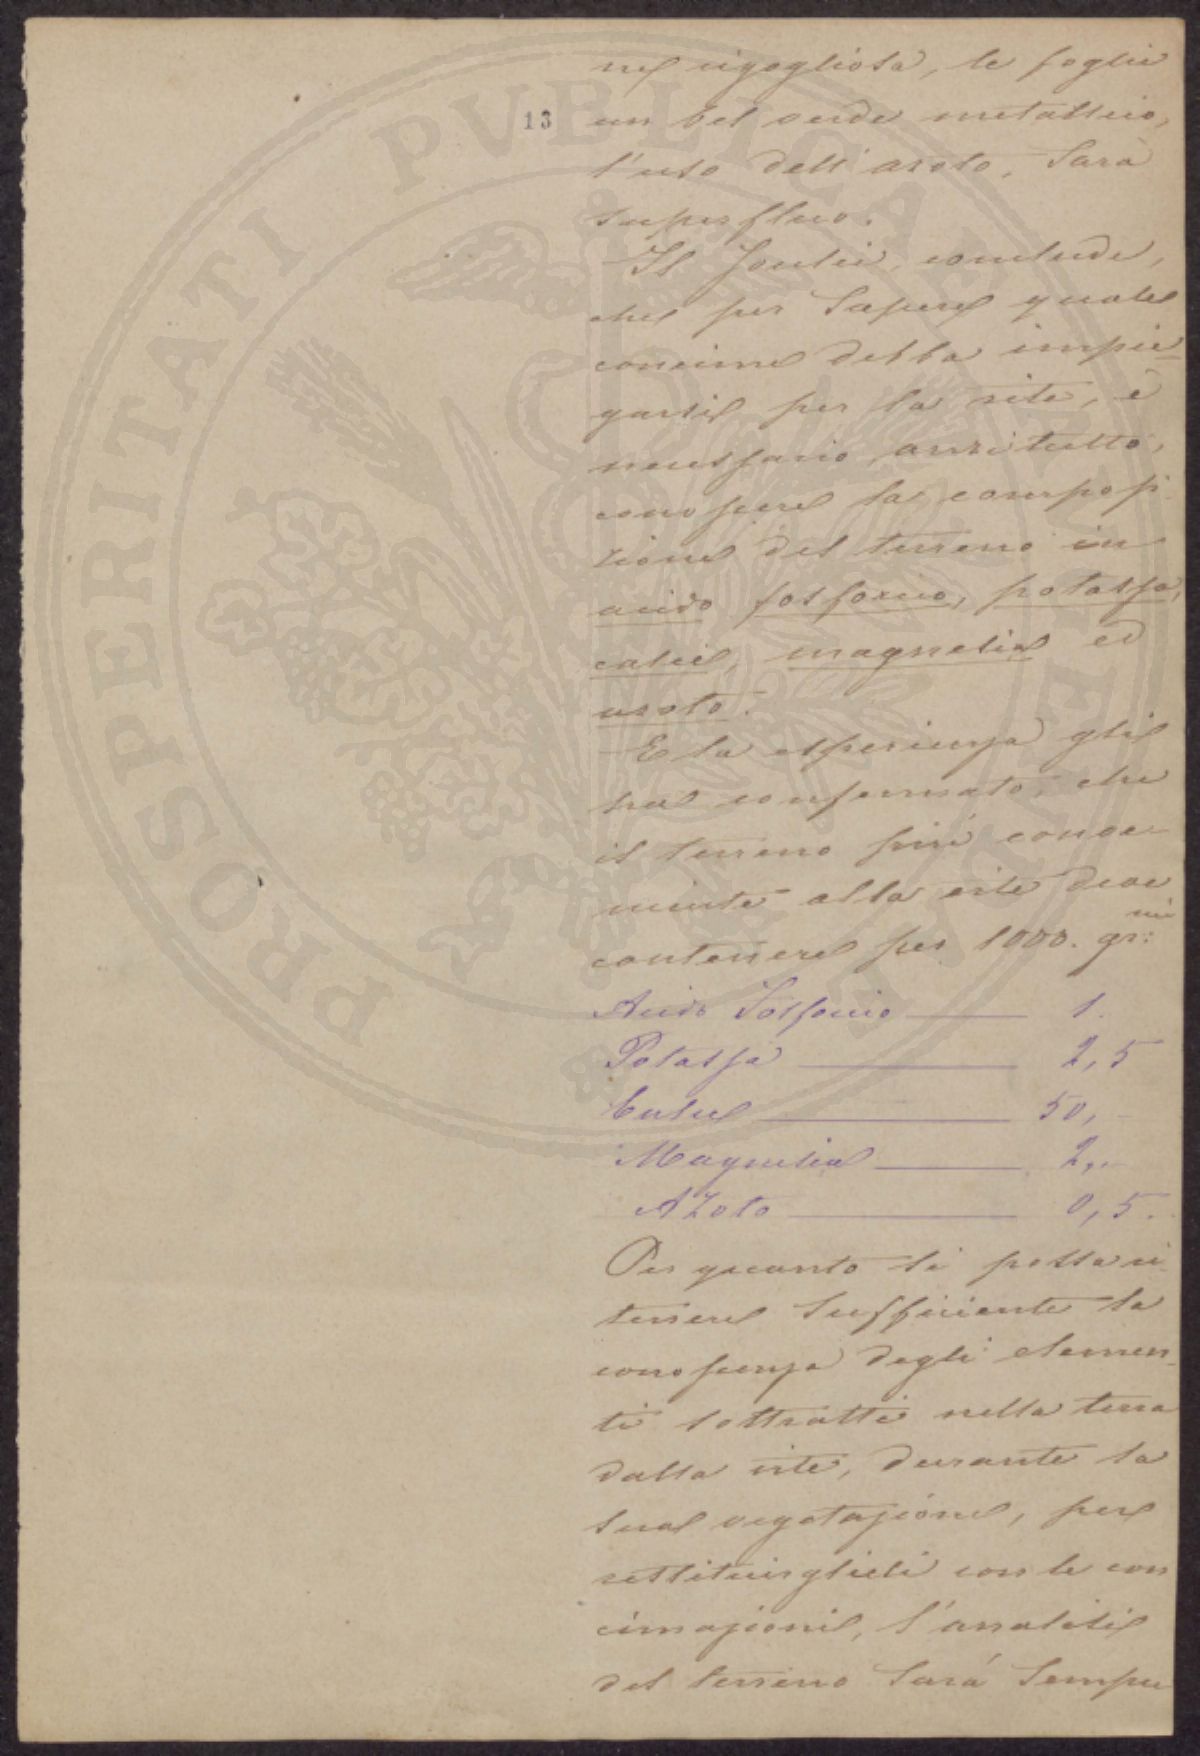 ne rigogliosa, le foglie
13
un bel verde metallico,
l'uso dell'azoto, sarà
superfluo.
Il Joulie, conclude,
che per sapere quale
concime debba impie-
garsi per la vite, è
necessario anzitutto,
conoscere la composi-
zione del terreno in
acido fosforico, potassa,
calce, magnesia ed
azoto.
E la esperienza gli
ha confermato, che
il terreno più conve-
niente alla vite deve
contenere per 1000. gr:mi
Acido Fosforico 1.
Potassa 2,5
Calce 50,-
Magnesia 2,-
Azoto 0,5.
Per quanto si possa ri-
tenere sufficiente la
conoscenza degli elemen-
ti sottratti nella terra
dalla vite, durante la
sua vegetazione, per
restituirglieli con le con
cimazioni, l'analisi
del terreno sarà sempre
PROSPERITATI PVBLICAE